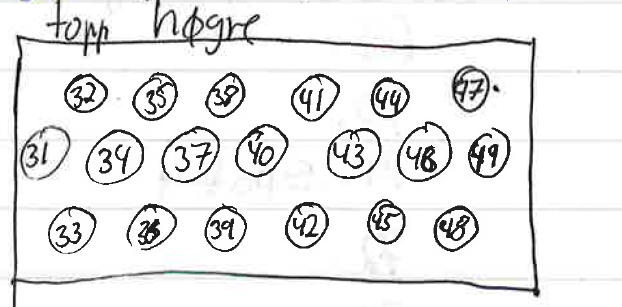 topp høgre
32 35 38 41 44 47.
31 34 37 40 43 46 49
33 36 39 42 45 48